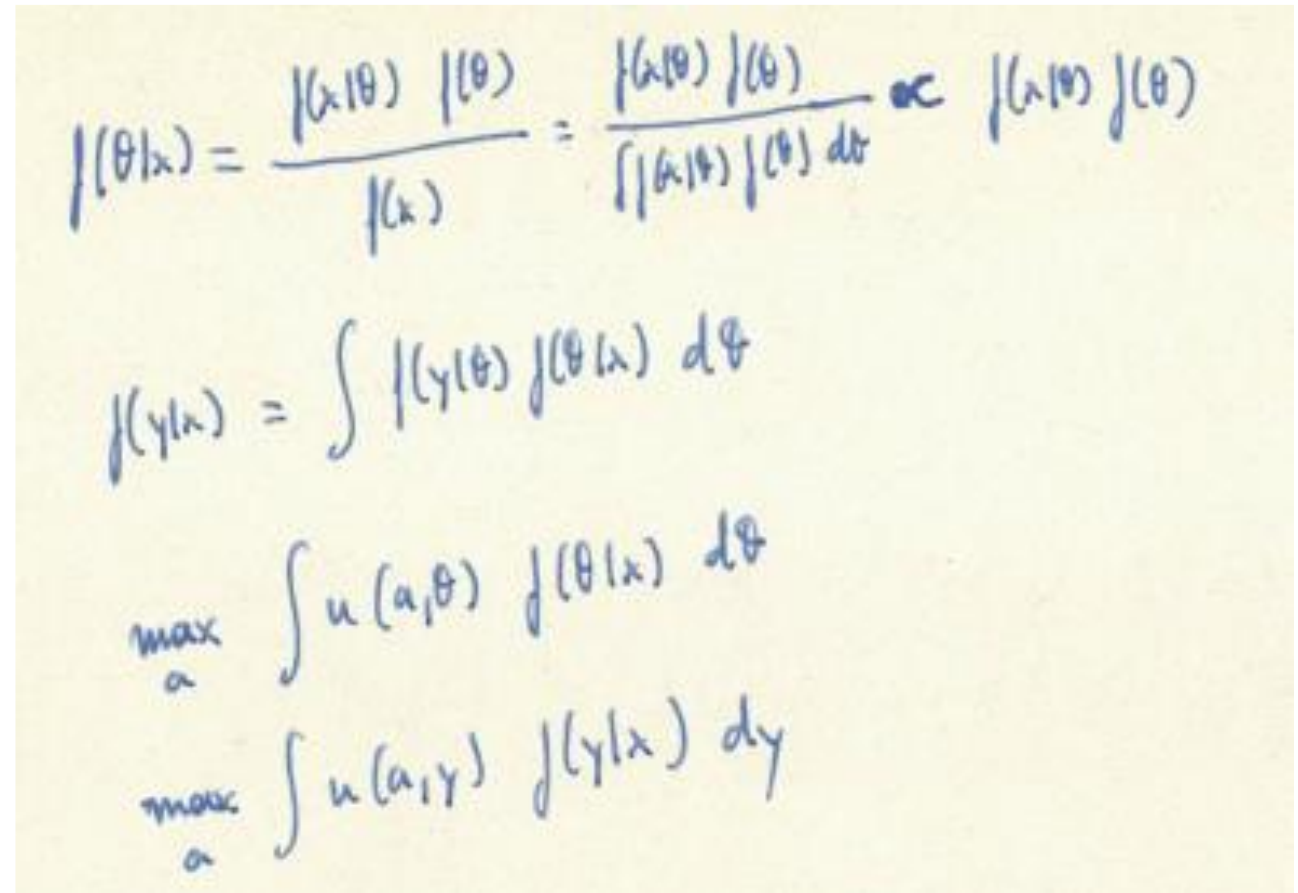 f(θ|x) = f(x|θ) f(θ) / f(x) = f(x|θ) f(θ) / ∫f(x|θ) f(θ) dθ ∝ f(x|θ) f(θ)
f(y|x) = ∫ f(y|θ) f(θ|x) dθ
max a ∫ u(a,θ) f(θ|x) dθ
max a ∫ u(a,y) f(y|x) dy